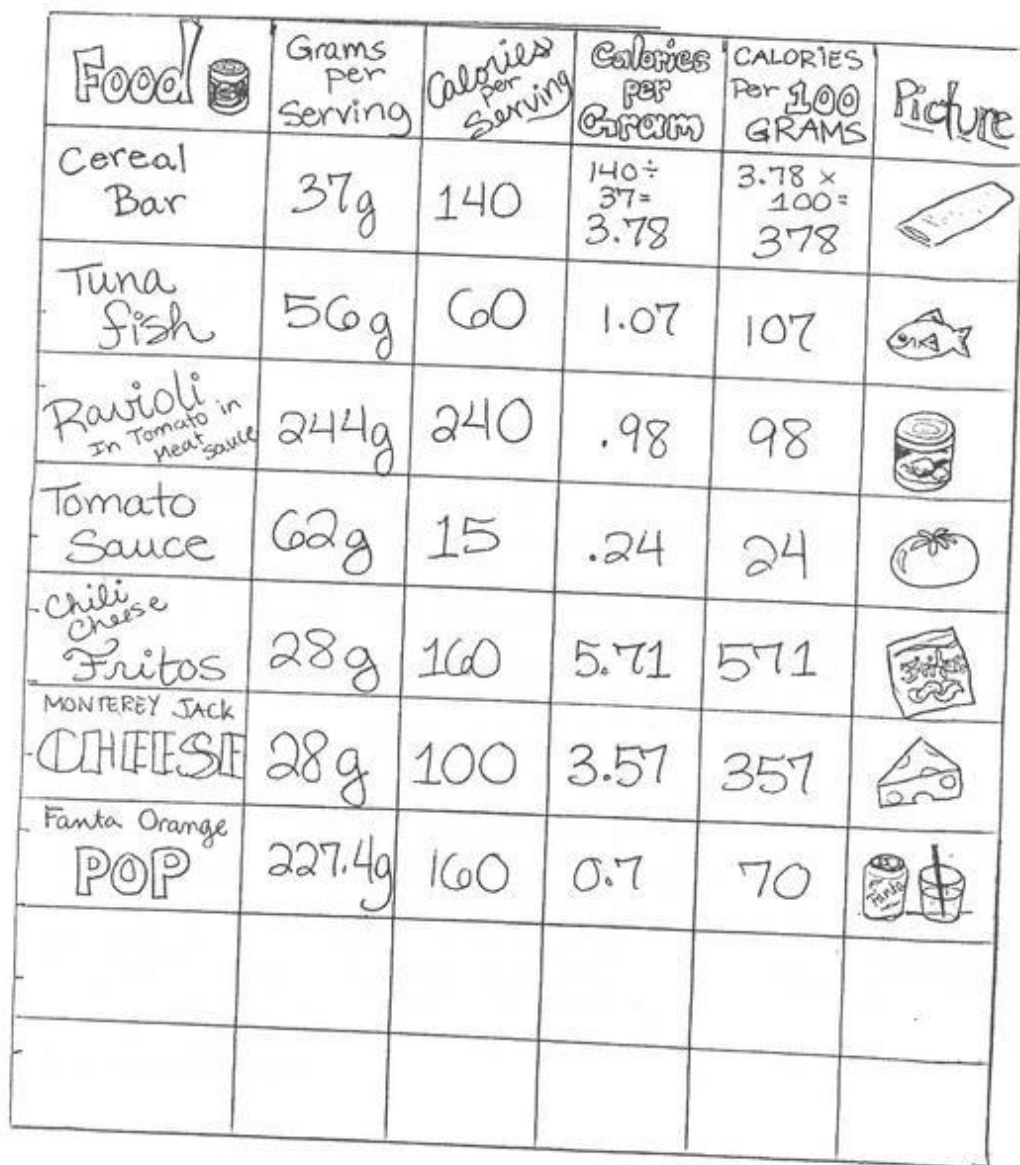 Food
Grams
per
Serving
Calories
per
Serving
Calories
per
Gram
CALORIES
Per 100
GRAMS
Picture
Cereal
Bar
37g
140
140÷
37=
3.78
3.78 ×
100=
378
Tuna
fish
56g
60
1.07
107
Ravioli
In Tomato in
Meat sauce
244g
240
.98
98
Tomato
Sauce
62g
15
.24
24
Chili
Cheese
Fritos
28g
160
5.71
571
Fritos
MONTEREY JACK
CHEESE
28g
100
3.57
357
Fanta Orange
POP
227.4g
160
0.7
70
Fanta